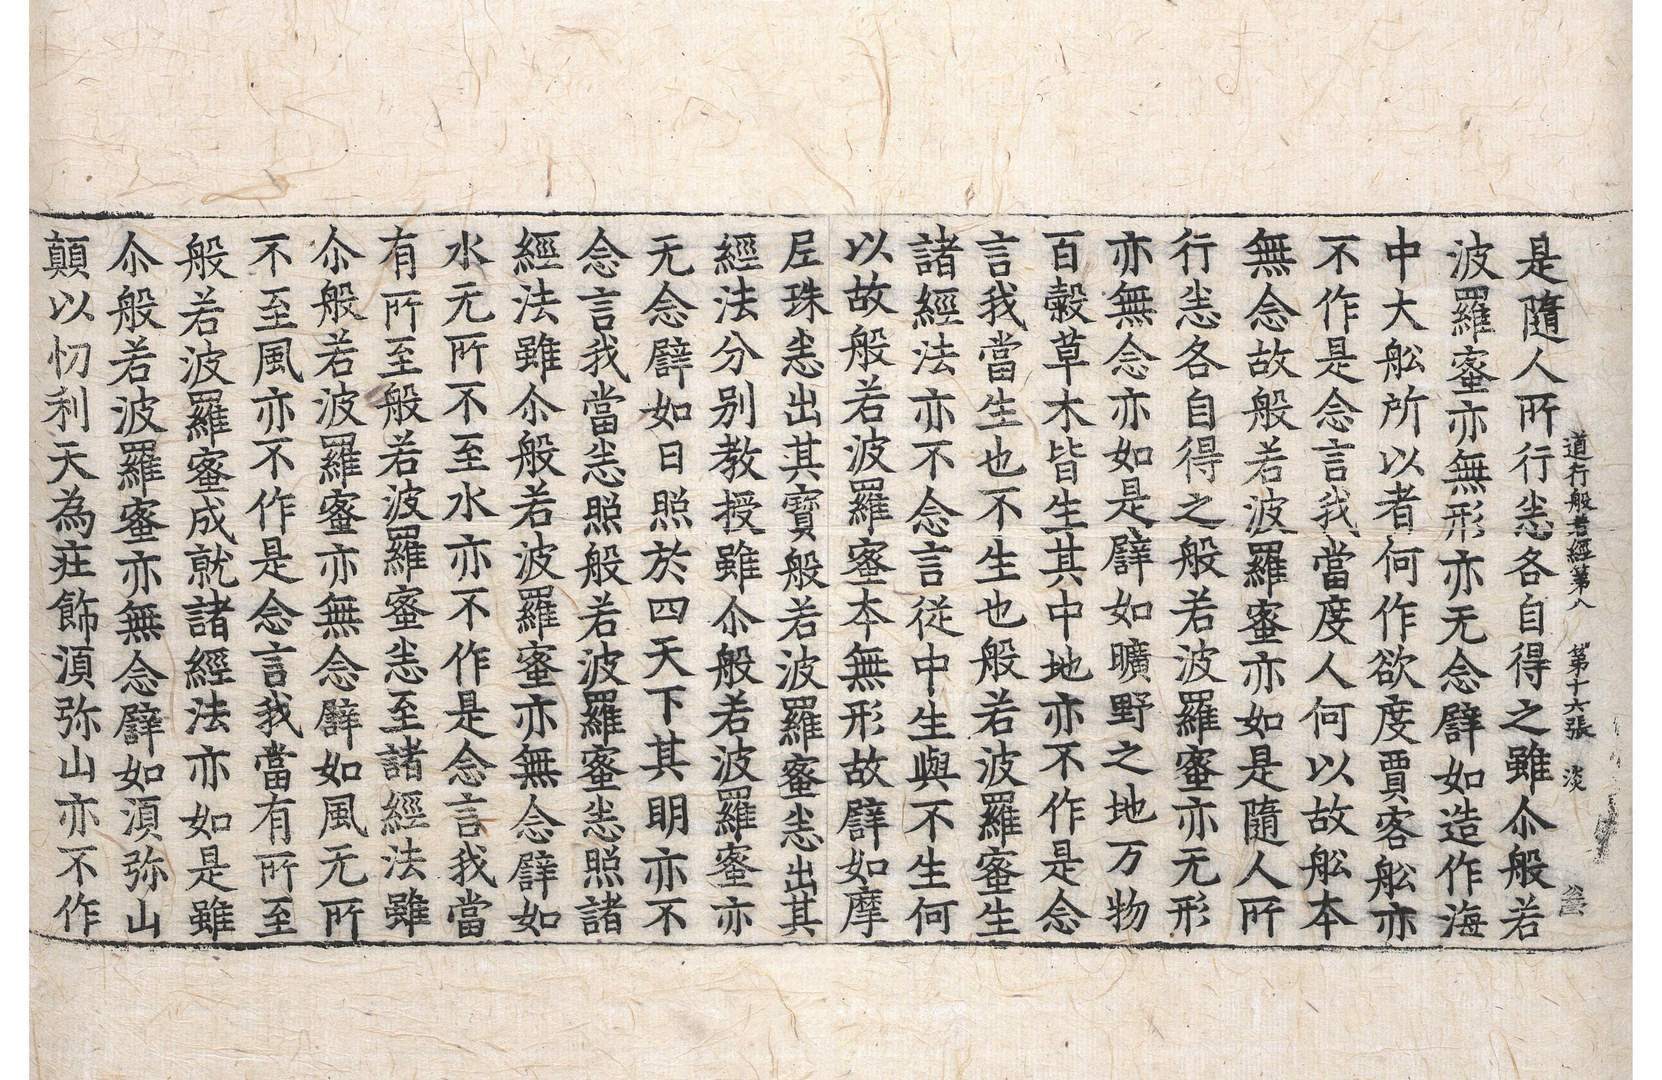 道行般若經第八　第十六張　淡
是隨人所行恙各自得之雖尒般若
波羅蜜亦無形亦无念譬如造作海
中大舩所以者何作欲度賈客舩亦
不作是念言我當度人何以故舩本
無念故般若波羅蜜亦如是隨人所
行恙各自得之般若波羅蜜亦无形
亦無念亦如是譬如曠野之地万物
百穀草木皆生其中地亦不作是念
言我當生也不生也般若波羅蜜生
諸經法亦不念言従中生與不生何
以故般若波羅蜜本無形故譬如摩
尼珠恙出其寶般若波羅蜜恙出其
經法分別教授雖尒般若波羅蜜亦
无念譬如日照於四天下其明亦不
念言我當恙照般若波羅蜜恙照諸
經法雖尒般若波羅蜜亦無念譬如
水无所不至水亦不作是念言我當
有所至般若波羅蜜恙至諸經法雖
尒般若波羅蜜亦無念譬如風无所
不至風亦不作是念言我當有所至
般若波羅蜜成就諸經法亦如是雖
尒般若波羅蜜亦無念譬如湏弥山
顛以忉利天為莊飾湏弥山亦不作